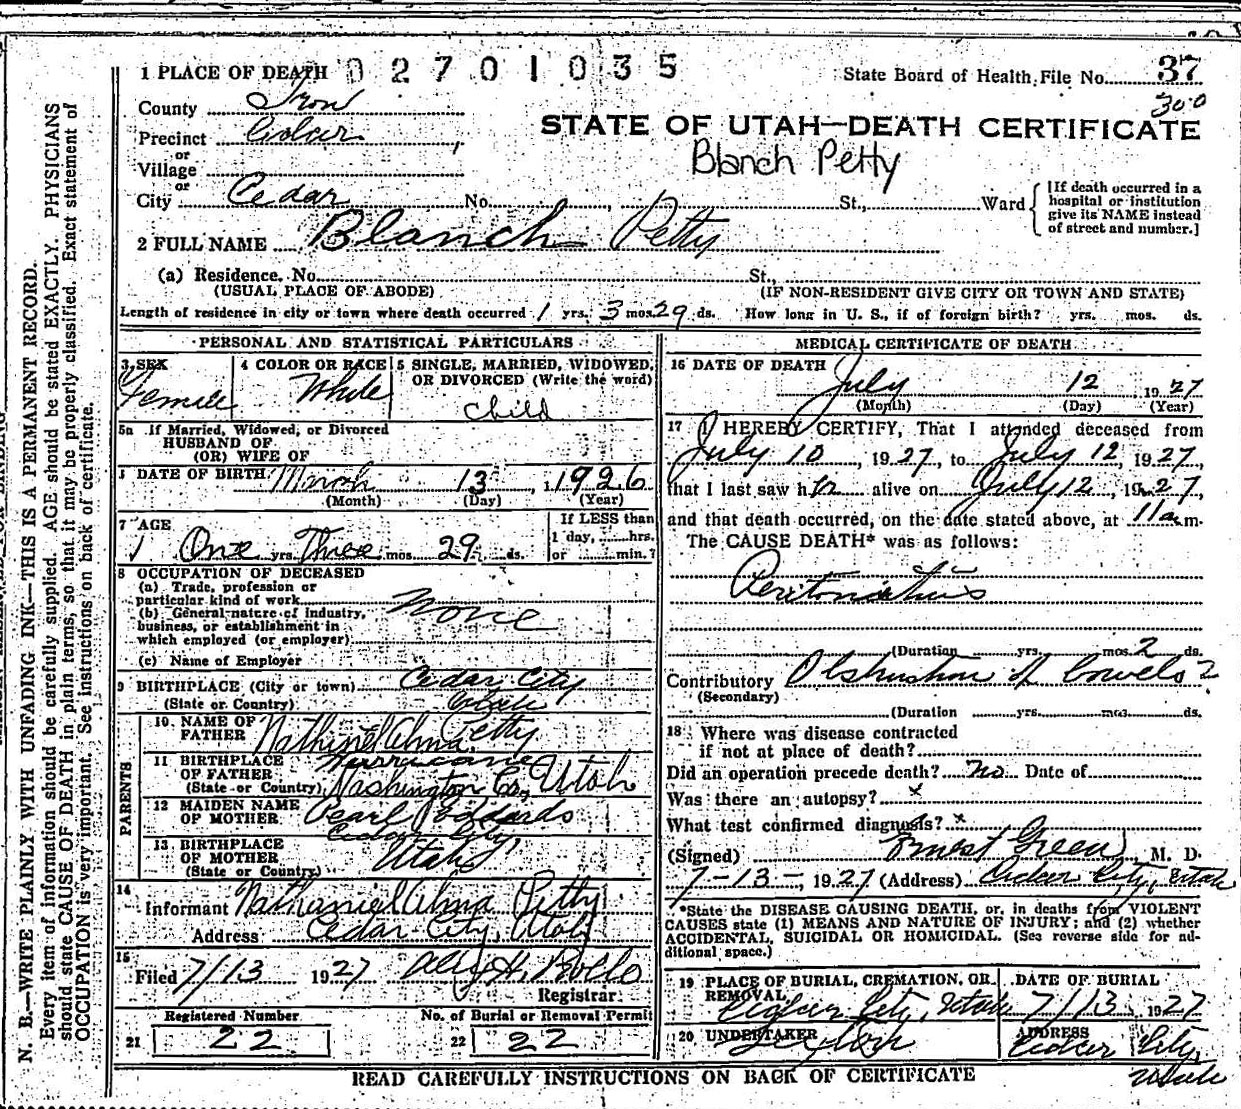 1 PLACE OF DEATH 02701035 State Board of Health File No. 37
300
County Iron
STATE OF UTAH—DEATH CERTIFICATE
Precinct Cedar
Blanch Petty
or
Village
or
City Cedar No. St., Ward [If death occurred in a hospital or institution give its NAME instead of street and number.]
2 FULL NAME Blanch Petty
(a) Residence. No. St.,
(USUAL PLACE OF ABODE) (IF NON-RESIDENT GIVE CITY OR TOWN AND STATE)
Length of residence in city or town where death occurred 1 yrs. 3 mos. 29 ds. How long in U. S., if of foreign birth? yrs. mos. ds.
PERSONAL AND STATISTICAL PARTICULARS
3 SEX 4 COLOR OR RACE 5 SINGLE, MARRIED, WIDOWED,
OR DIVORCED (Write the word)
Female White child
5a If Married, Widowed, or Divorced
HUSBAND OF
(OR) WIFE OF
DATE OF BIRTH March 13, 1926
(Month) (Day) (Year)
7 AGE If LESS than
1 day, hrs.
1 One yrs. Three mos. 29 ds. or min.?
8 OCCUPATION OF DECEASED
(a) Trade, profession or
particular kind of work
(b) General nature of industry,
business, or establishment in
which employed (or employer)
None
(c) Name of Employer
9 BIRTHPLACE (City or town) Cedar City
(State or Country) Utah
PARENTS
10. NAME OF
FATHER Nathiniel Alma Petty
11 BIRTHPLACE
OF FATHER
(State or Country)
Hurricane
Washington Co, Utah
12 MAIDEN NAME
OF MOTHER Pearl Eddards
13. BIRTHPLACE
OF MOTHER
(State or Country)
Cedar City,
Utah
14
Informant Nathaniel Alma Petty
Address Cedar City, Utah
15
Filed 7/13 1927
Registrar.
Registered Number No. of Burial or Removal Permit
21 22 22 22
MEDICAL CERTIFICATE OF DEATH
16 DATE OF DEATH
July 12 1927
(Month) (Day) (Year)
17 I HEREBY CERTIFY, That I attended deceased from
July 10, 1927, to July 12, 1927,
that I last saw her alive on July 12, 1927,
and that death occurred, on the date stated above, at 11 a m.
The CAUSE DEATH* was as follows:
Peritonitis
(Duration yrs. mos. 2 ds.
Contributory Obstruction of bowels 2
(Secondary)
(Duration yrs. mos. ds.
18 Where was disease contracted
if not at place of death?
Did an operation precede death? no Date of
Was there an autopsy? x
What test confirmed diagnosis? x
(Signed) Ernest Green, M. D.
7-13-, 1927 (Address) Cedar City, Utah
*State the DISEASE CAUSING DEATH, or, in deaths from VIOLENT
CAUSES state (1) MEANS AND NATURE OF INJURY; and (2) whether
ACCIDENTAL, SUICIDAL OR HOMICIDAL. (See reverse side for ad-
ditional space.)
19 PLACE OF BURIAL, CREMATION, OR
REMOVAL
DATE OF BURIAL
Cedar City, Utah 7/13 1927
20 UNDERTAKER ADDRESS
Cedar City,
Utah
READ CAREFULLY INSTRUCTIONS ON BACK OF CERTIFICATE
N. B.—WRITE PLAINLY WITH UNFADING INK—THIS IS A PERMANENT RECORD.
Every item of information should be carefully supplied. AGE should be stated EXACTLY. PHYSICIANS
should state CAUSE OF DEATH in plain terms, so that it may be properly classified. Exact statement of
OCCUPATION is very important. See instructions on back of certificate.